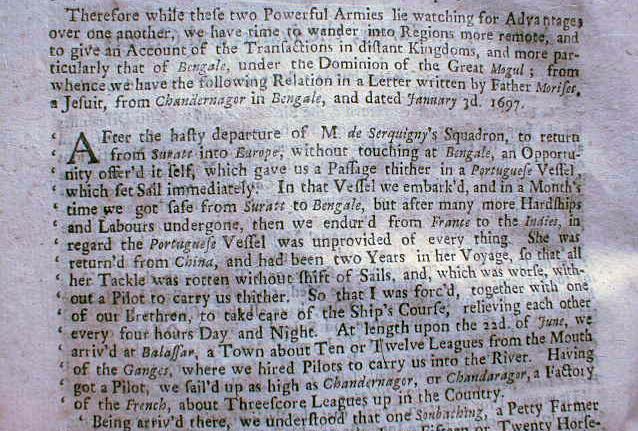 Therefore whilſt theſe two Powerful Armies lie watching for Advantages
over one another, we have time to wander into Regions more remote, and
to give an Account of the Tranſactions in diſtant Kingdoms, and more par-
ticularly that of Bengale, under the Dominion of the Great Mogul; from
whence we have the following Relation in a Letter written by Father Moriſet,
a Jeſuit, from Chandernagor in Bengale, and dated January 3d. 1697.
‘ AFter the haſty departure of M. de Serquigny's Squadron, to return
‘ from Suratt into Europe, without touching at Bengale, an Opportu-
‘ nity offer'd it ſelf, which gave us a Paſſage thither in a Portugueſe Veſſel,
‘ which ſet Sail immediately. In that Veſſel we embark'd, and in a Month's
‘ time we got ſafe from Suratt to Bengale, but after many more Hardſhips
‘ and Labours undergone, then we endur'd from France to the Indies, in
‘ regard the Portugueſe Veſſel was unprovided of every thing. She was
‘ return'd from China, and had been two Years in her Voyage, ſo that all
‘ her Tackle was rotten without ſhift of Sails, and, which was worſe, with-
‘ out a Pilot to carry us thither. So that I was forc'd, together with one
‘ of our Brethren, to take care of the Ship's Courſe, relieving each other
‘ every four hours Day and Night. At length upon the 22d. of June, we
‘ arriv'd at Balaſſar, a Town about Ten or Twelve Leagues from the Mouth
‘ of the Ganges, where we hired Pilots to carry us into the River. Having
‘ got a Pilot, we ſail'd up as high as Chandernagor, or Chandaragor, a Factory
‘ of the French, about Threeſcore Leagues up in the Country.
‘ Being arriv'd there, we underſtood that one Sonbaching, a Petty Farmer
Fifteen or Twenty Horſe-